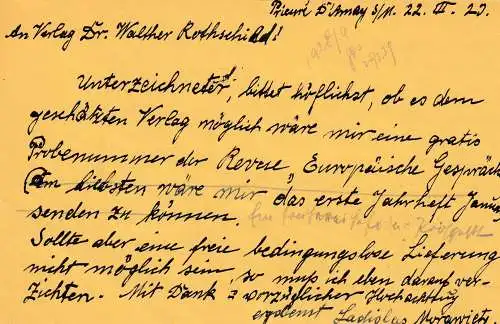 Prieuré D'Amay s/M. 22. III. 29.
An Verlag Dr. Walther Rothschild!
Unterzeichneter, bittet höflichst, ob es dem
geschätzten Verlag möglich wäre mir eine gratis
Probenummer der Revue „Europäische Gespräch
Am liebsten wäre mir das erste Jahrheft Janu
senden zu können.
Sollte aber eine freie bedingungslose Lieferung
nicht möglich sein, so muß ich eben darauf ver-
zichten. Mit Dank & vorzüglicher Hochachtung
ergebenst Ladislas Morawietz